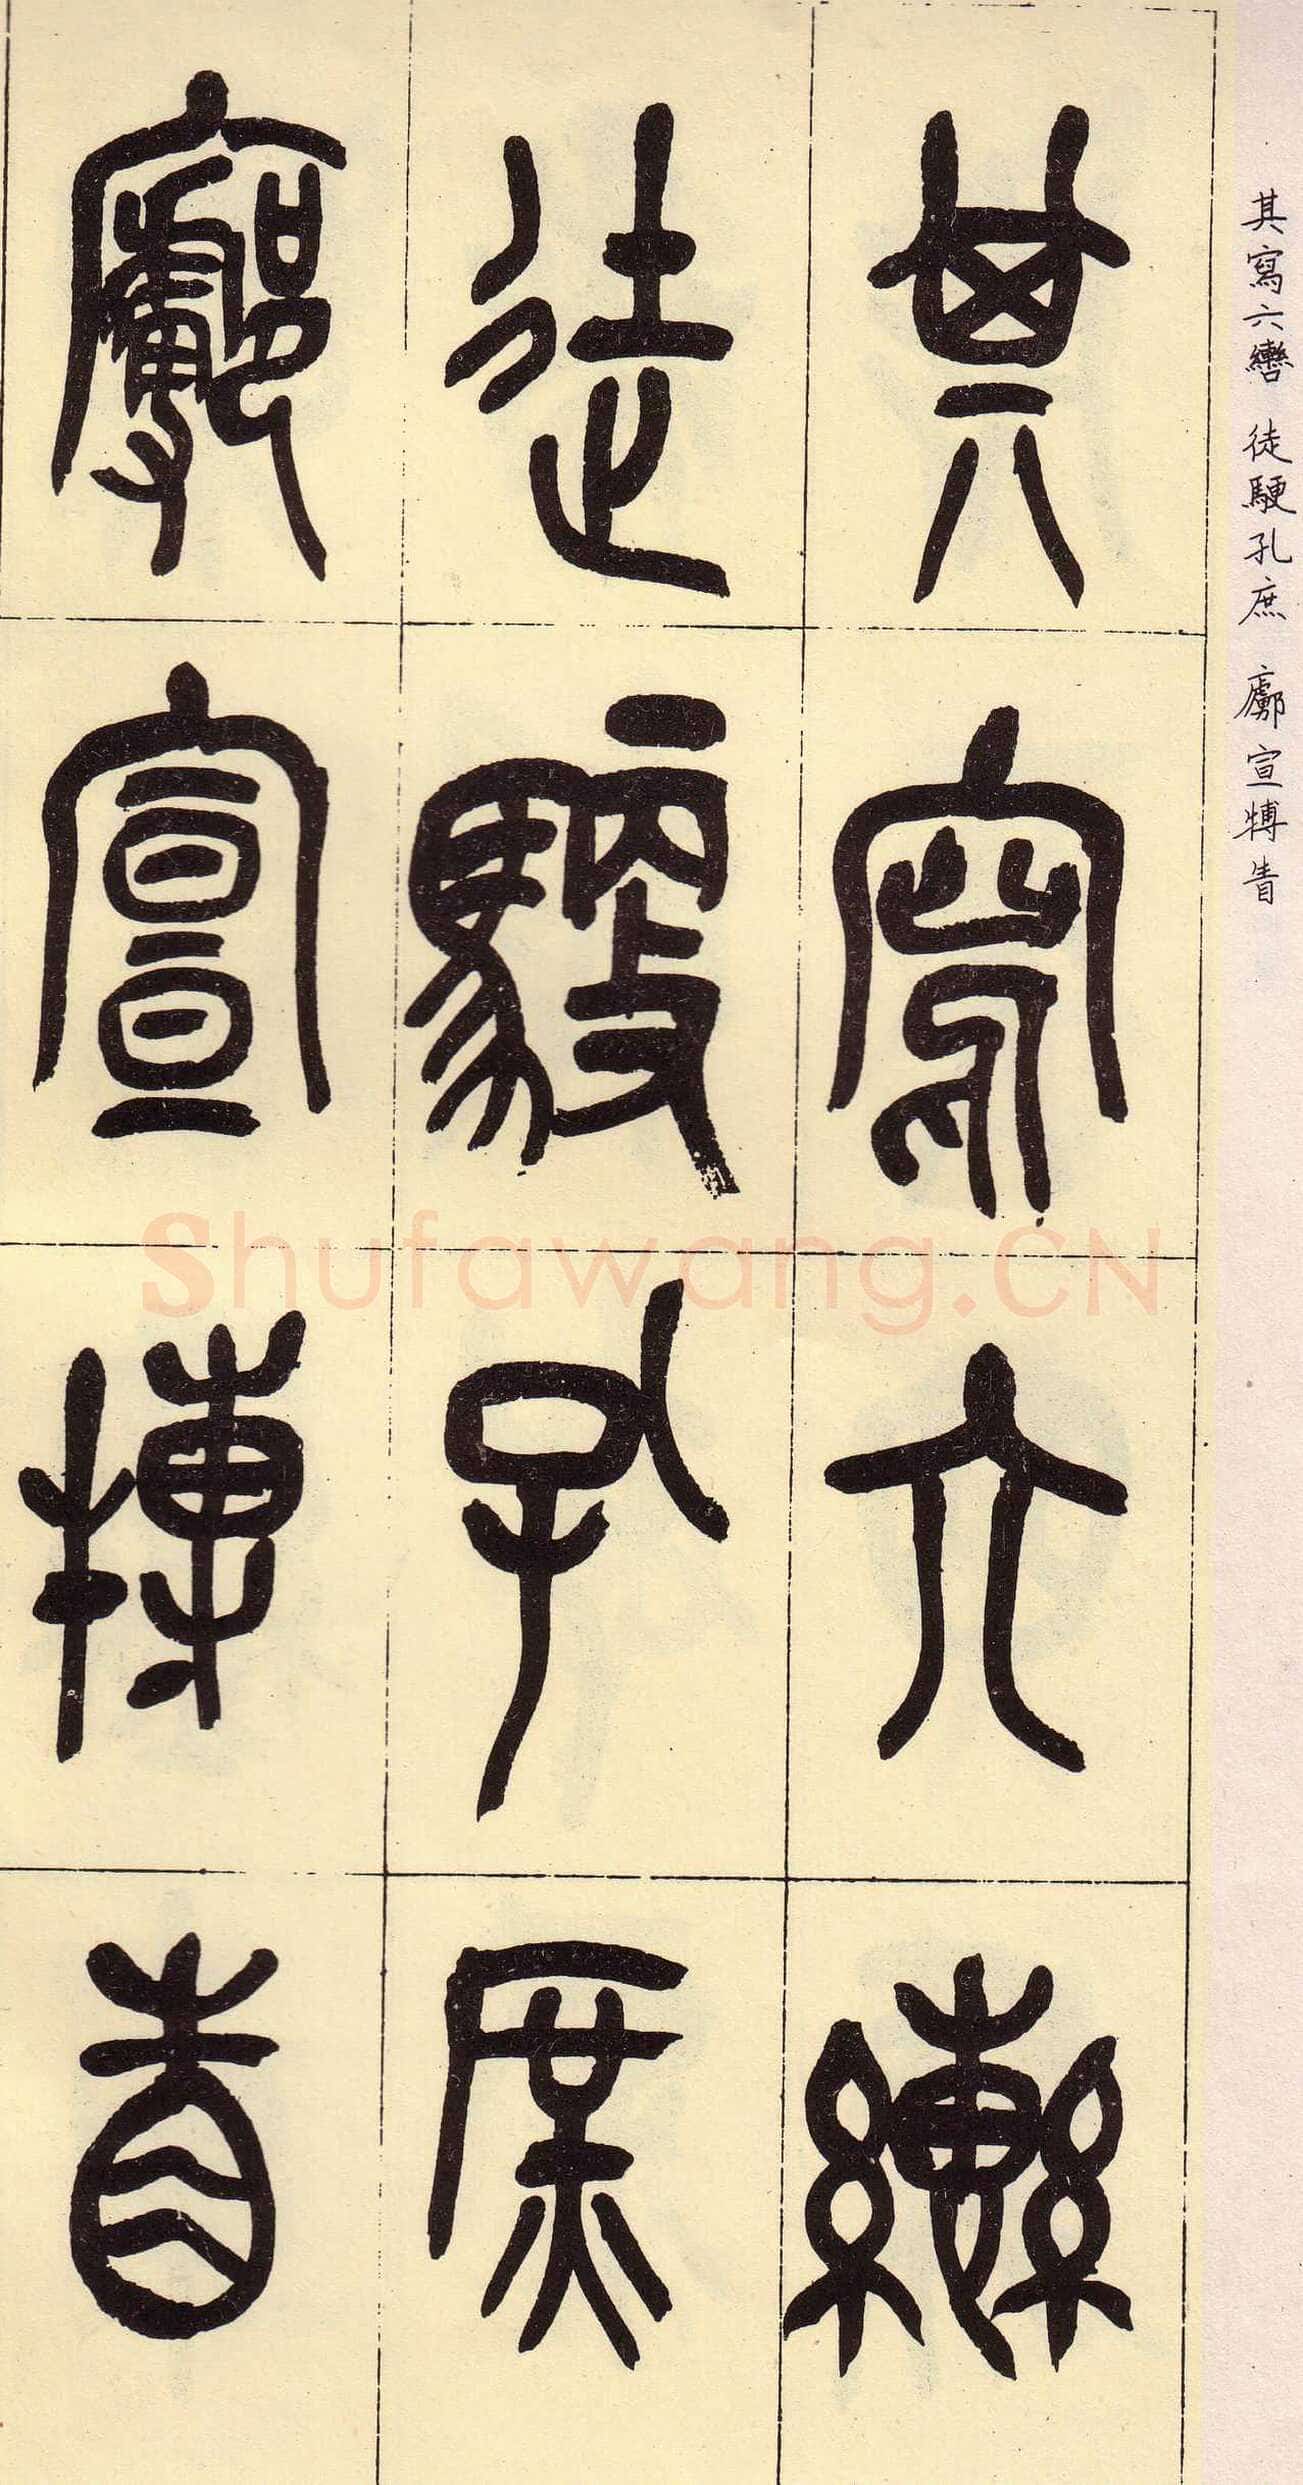 其寫六轡
徒駛孔庶
廓宣搏眚
其寫六轡 徒騣孔庶 廓宣搏眚
Shufawang.CN